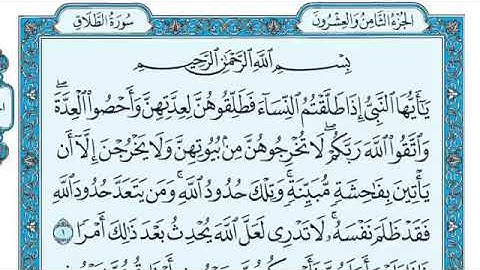 سُورَةُ الطَّلَاقِ
الجُزْءُ الثَّامِنُ وَالعِشْرُونَ
بِسْمِ اللَّهِ الرَّحْمَٰنِ الرَّحِيمِ
يَٰٓأَيُّهَا النَّبِيُّ إِذَا طَلَّقْتُمُ النِّسَآءَ فَطَلِّقُوهُنَّ لِعِدَّتِهِنَّ وَأَحْصُوا۟ الْعِدَّةَ ۖ
وَاتَّقُوا۟ اللَّهَ رَبَّكُمْ ۖ لَا تُخْرِجُوهُنَّ مِنۢ بُيُوتِهِنَّ وَلَا يَخْرُجْنَ إِلَّآ أَن
يَأْتِينَ بِفَٰحِشَةٍ مُّبَيِّنَةٍ ۚ وَتِلْكَ حُدُودُ اللَّهِ ۚ وَمَن يَتَعَدَّ حُدُودَ اللَّهِ
فَقَدْ ظَلَمَ نَفْسَهُۥ ۚ لَا تَدْرِى لَعَلَّ اللَّهَ يُحْدِثُ بَعْدَ ذَٰلِكَ أَمْرًا ١